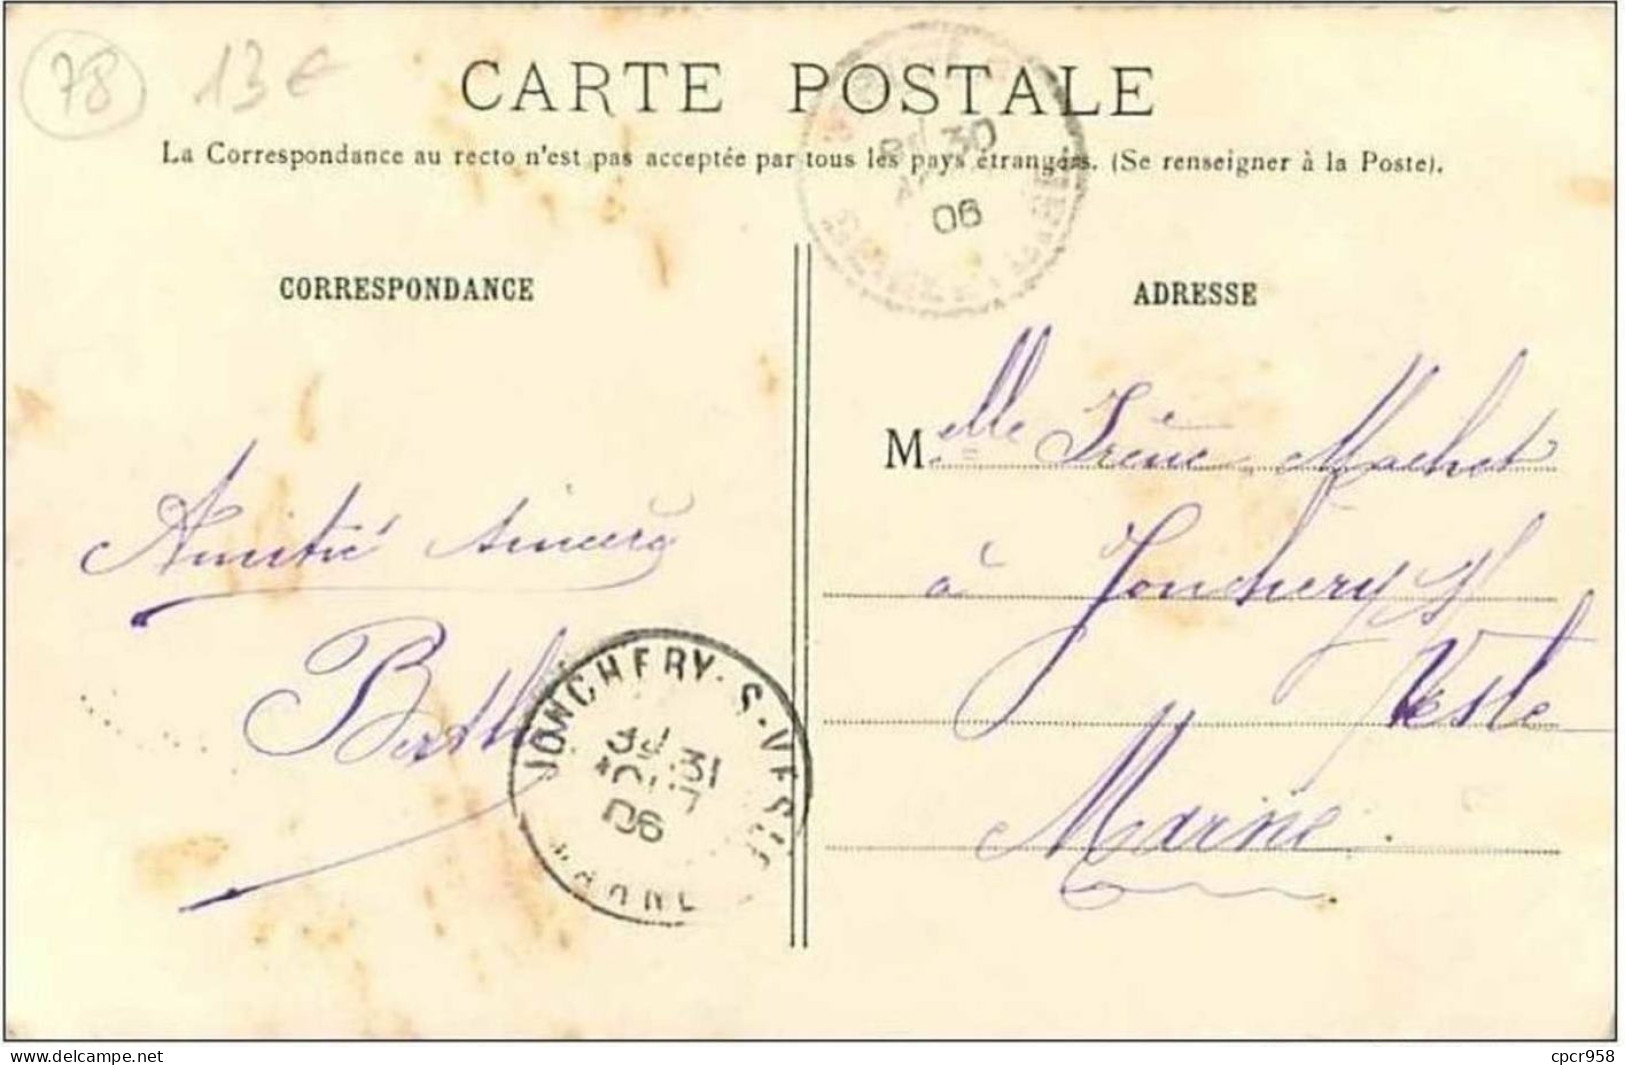 78 13€
CARTE POSTALE
La Correspondance au recto n'est pas acceptée par tous les pays étrangers. (Se renseigner à la Poste).
30
06
CORRESPONDANCE
ADRESSE
Melle Irène Machet
à Jonchery s/
Vesle
Marne
Amitié sincère
Berthe
JONCHERY-S-VESLE
31
06
MARNE
www.delcampe.net
cpcr958